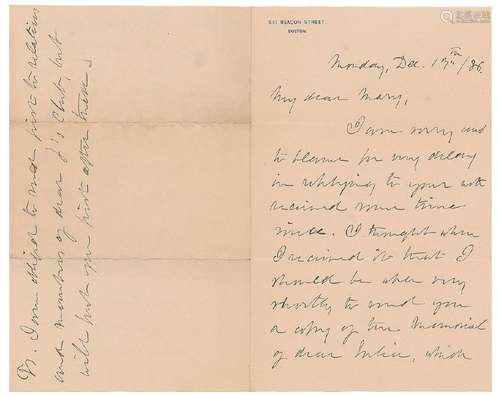 BEACON STREET,
BOSTON.
Monday, Dec. 13th/86.
My dear Mary,
I am sorry and
to blame for my delay
in replying to your note
received some time
since. I thought when
I received it that I
should be able very
shortly to send you
a copy of the Memorial
of dear Julia, which
I am obliged to send first to relations
and members of dear J's Club, but
will put you first after these.